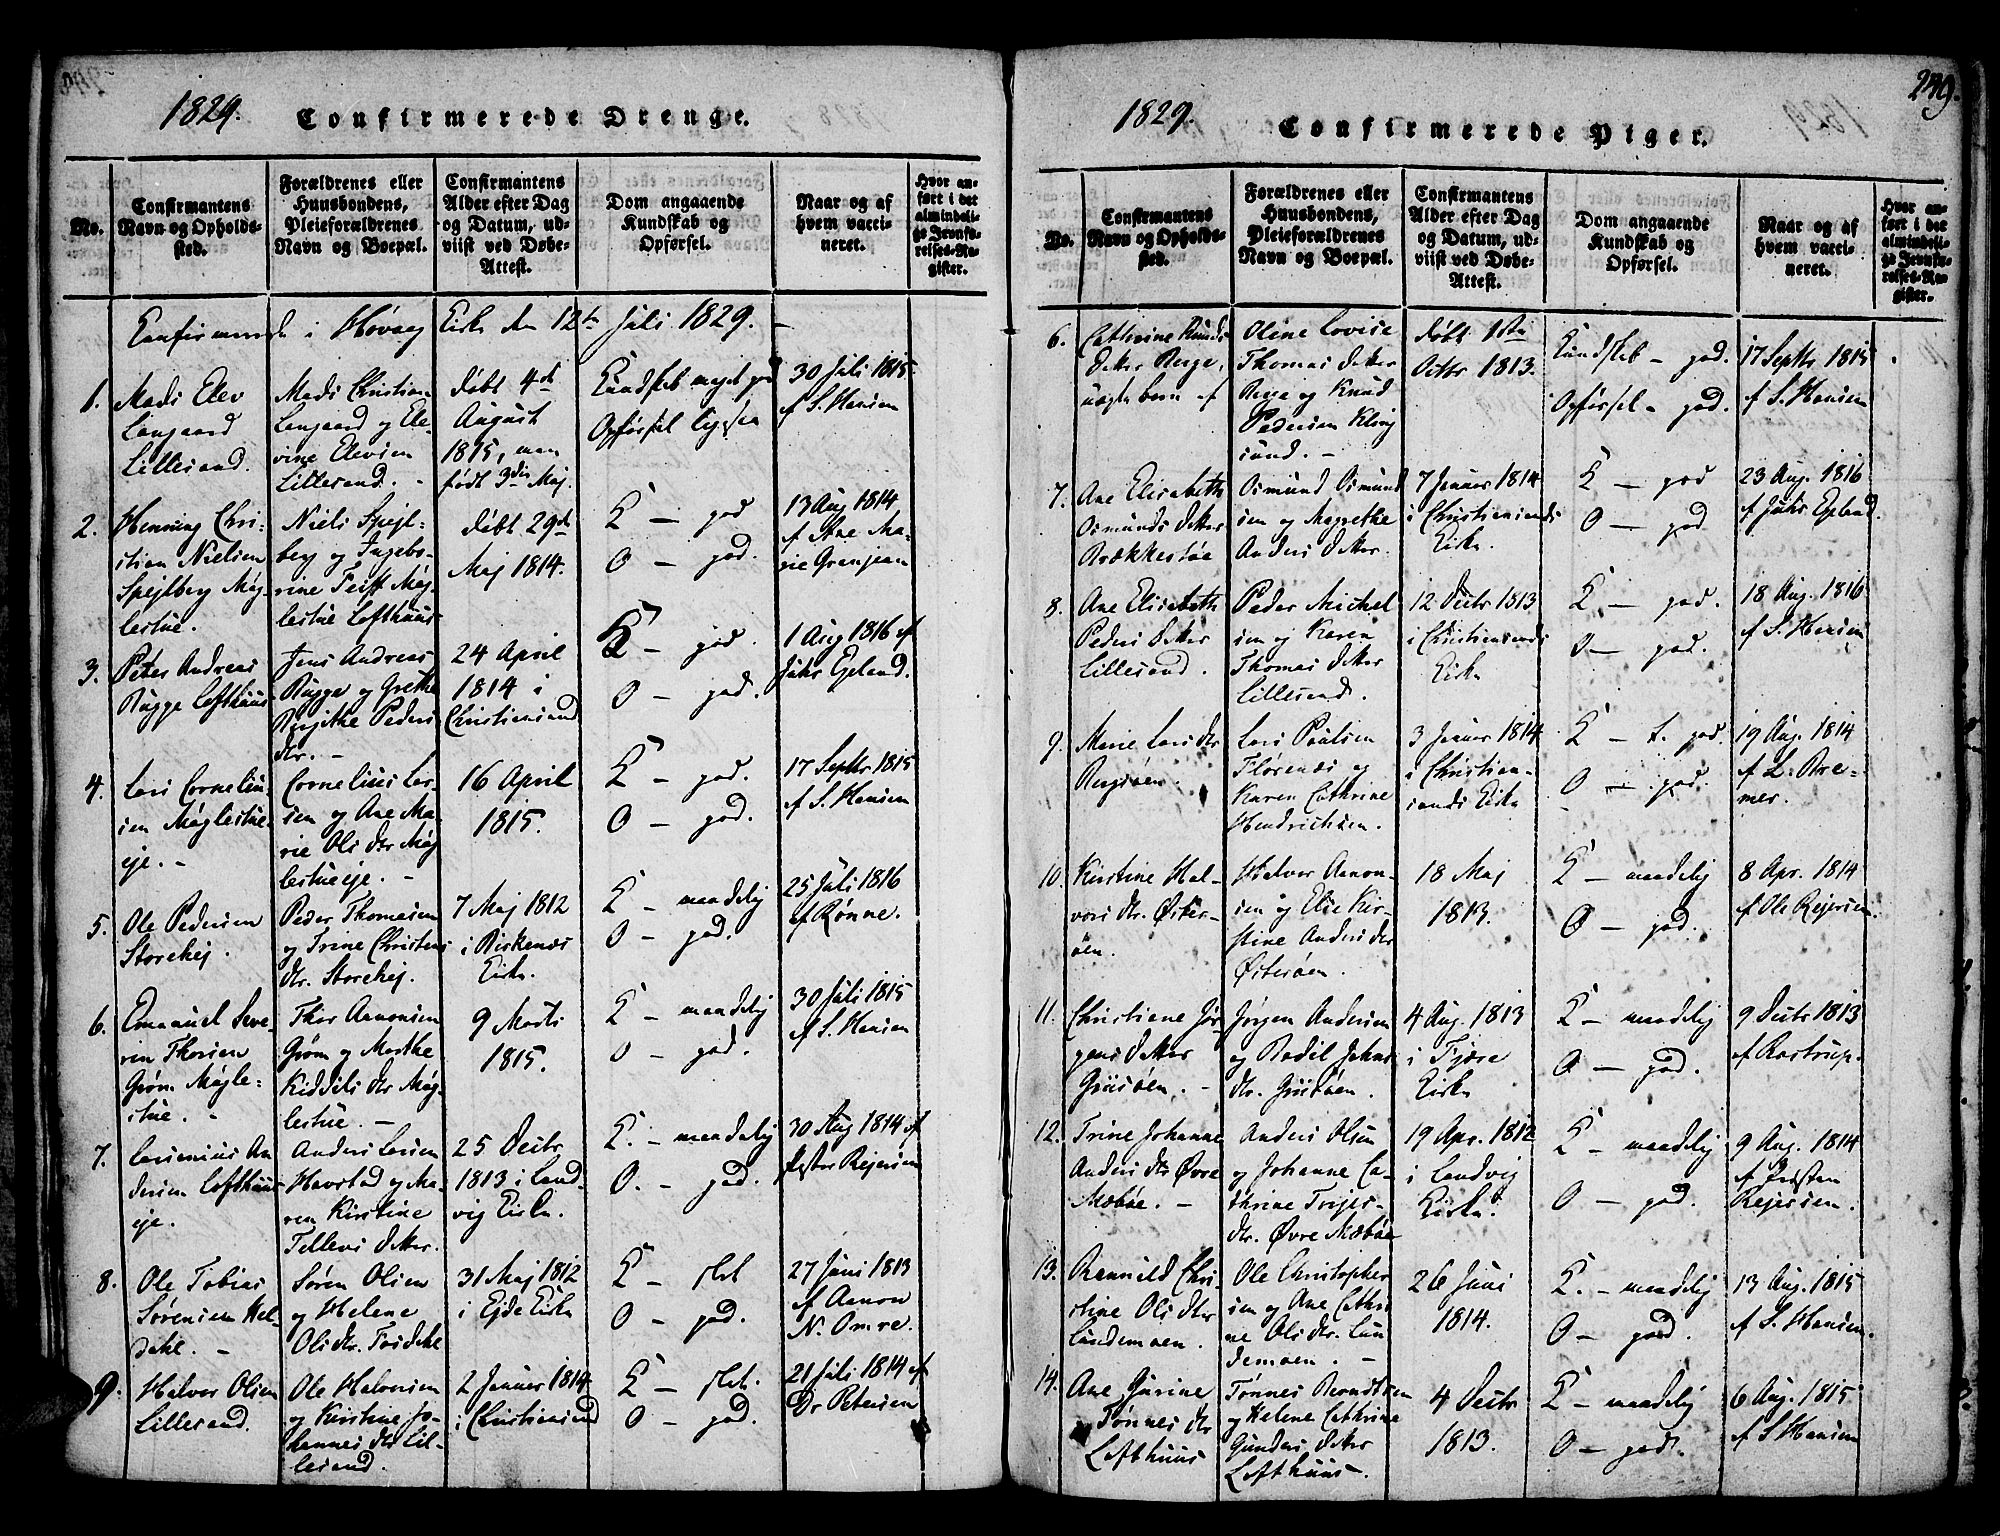 1829. Confirmerede Drenge.
No.
Confirmantens
Navn og Opholds-
sted.
Forældrenes eller
Huusbondens,
Pleieforældrenes
Navn og Boepæl.
Confirmantens
Alder efter Dag
og Datum, ud-
viist ved Døbe-
Attest.
Dom angaaende
Kundskab og
Opførsel.
Naar og af
hvem vacci-
neret.
Hvor an-
ført i det
almindeli-
ge Jevnfø-
relses-Re-
gister.
Confirmerede i Høvaag Kirke den 12te Juli 1829. -
1.
Mads Elev
Langaard
Lillesand.
Mads Christian
Langaard og Ele-
vine Elevsen
Lillesand. -
døbt 4de
August
1815, men
født 3die Maj.
Kundskab meget god
Opførsel
30 Juli 1815
af S. Hansen
2.
Henning Chri-
stian Nielsen
Spejlberg Møg-
lestue.
Niels Spejl-
berg og Ingebo-
rine Feiff Møg-
lestue Lofthuus
døbt 29de
Maj 1814.
K - god
O - god.
13 Aug 1814
af Ane Ma-
rie Granjean
3.
Peter Andreas
Rugge Lofthuus
Jens Andreas
Rugge og Grethe
Birgithe Peders
dtr. -
24 April
1814 i
Christiansand
K - god.
O - god.
1 Aug 1816 af
Johs Egeland.
4.
Lars Corneliu-
sen Møglestue-
eje. -
Cornelius Lar-
sen og Ane Ma-
rie Ols dtr Møg
lestueeje. -
16 April
1815.
K - god.
O - god.
17 Septbr 1815
af S. Hansen
5.
Ole Pedersen
Storehej.
Peder Thomasen
og Trine Christens
dtr. Storehej.
7 Maj 1812
i Birkenæs
Kirke.
K - maadelig
O - god.
25 Juli 1816
af Rønne.
6.
Emanuel Seve-
rin Thorsen
Grøm. Møgle-
stue. -
Thor Aanonsen
Grøm og Marthe
Kiddils dtr Møg-
lestue. -
9 Marts
1815.
K - maadelig
O - god.
30 Juli 1815
af S. Hansen
7.
Larsenius An
dersen Lofthuus-
eje.
Anders Larsen
Havstad og Ma-
ren Kirstine
Tellevs datter.
25 Decbr
1813 i Land-
vig Kirke.
K. - maadelig
O. - god.
30 Aug 1814 af
Rejersen
8.
Ole Tobias
Sørensen Hel-
dahl. -
Søren Olsen
og Helene
Ols dtr.
31 Maj 1812
i Ejde Kirke
K - slet
O - god.
27 Juni 1813
af Aanon
N. Omre.
9.
Halvor Olsen
Lillesand.
Ole Halvorsen
og Kirstine Jo-
hannes dtr Lil-
lesand.
2 Januar 1814
i Christiansand
K - slet.
O - god.
21 Juli 1814 af
Dr Petersen
249.
1829. Confirmerede Piger.
No.
Confirmantens
Navn og Opholds-
sted.
Forældrenes eller
Huusbondens,
Pleieforældrenes
Navn og Boepæl.
Confirmantens
Alder efter Dag
og Datum, ud-
viist ved Døbe-
Attest.
Dom angaaende
Kundskab og
Opførsel.
Naar og af
hvem vacci-
neret.
Hvor an-
ført i det
almindeli-
ge Jevnfø-
relses-Re-
gister.
6.
Cathrine Knuds
datter Berge,
uægte barn af
Oline Lovise
Thomas datter
Berge og Knud
Pedersen Kling
sund. -
døbt 1ste
Octbr 1813.
Kundskab - god.
Opførsel - god.
17 Septbr 1815
af S. Hansen
7.
Ane Elisabeth
Osmunds datter
Brækkestøe
Osmund Osmund
sen og Magrethe
Anders datter.
7 Januar 1814
i Christiansands
Kirke.
K - god
O - god
23 Aug. 1816
af Johs Egeland.
8.
Ane Elisabeth
Peders datter
Lillesand.
Peder Michel
sen og Karen
Thomas datter
Lillesand.
12 Decbr 1813
i Christiansands
Kirke
K - god.
O - god.
18 Aug. 1816
af S. Hansen
9.
Marie Lars dtr
Bergsøen.
Lars Poulsen
Florenæs og
Karen Cathrine
Hendrichsen.
3 Januar 1814
i Christian-
sands Kirke
K - t. god.
O - god.
19 Aug. 1814
af L. Bre-
mer.
10.
Kirstine Hal-
vors dtr. Øster-
øen.
Halvor Aanon-
sen og Else Kir-
stine Anders dtr
Østerøen.
18 Maj
1813.
K - maadelig
O - god.
8 Apr. 1814
af Ole Rejersen.
11.
Christiane Jør-
gens datter
Griisøen. -
Jørgen Andersen
og Bodil Johns
dtr. Griisøen.
4 Aug. 1813
i Fjære
Kirke
K - maadelig
O - god.
9 Decbr 1813
af Rostrup.
12.
Trine Johanne
Anders dtr Øvre
Mæbøe. -
Anders Olsen
og Johanne Ca-
thrine
dtr. Øvre Mæbøe
19 Apr. 1812
i Landvig
Kirke.
K - maadelig
O - god.
9 Aug. 1814
af
Rejersen.
13.
Rannild Chri-
stine Ols dtr
Lundemoen.
Ole Christopher
sen og Ane Cathri
ne Ols dtr. Lun
demoen. -
26 Juni
1814.
K. - maadelig
O - god.
13 Aug. 1815
af S. Hansen.
14.
Ane Gurine
Tønnes dtr
Lofthuus
Tønnes Berndtsen
og Helene Cathrine
Gunders datter
Lofthuus -
4 Decbr
1813.
K - maadelig
O - god.
6 Aug. 1815
af S Hansen